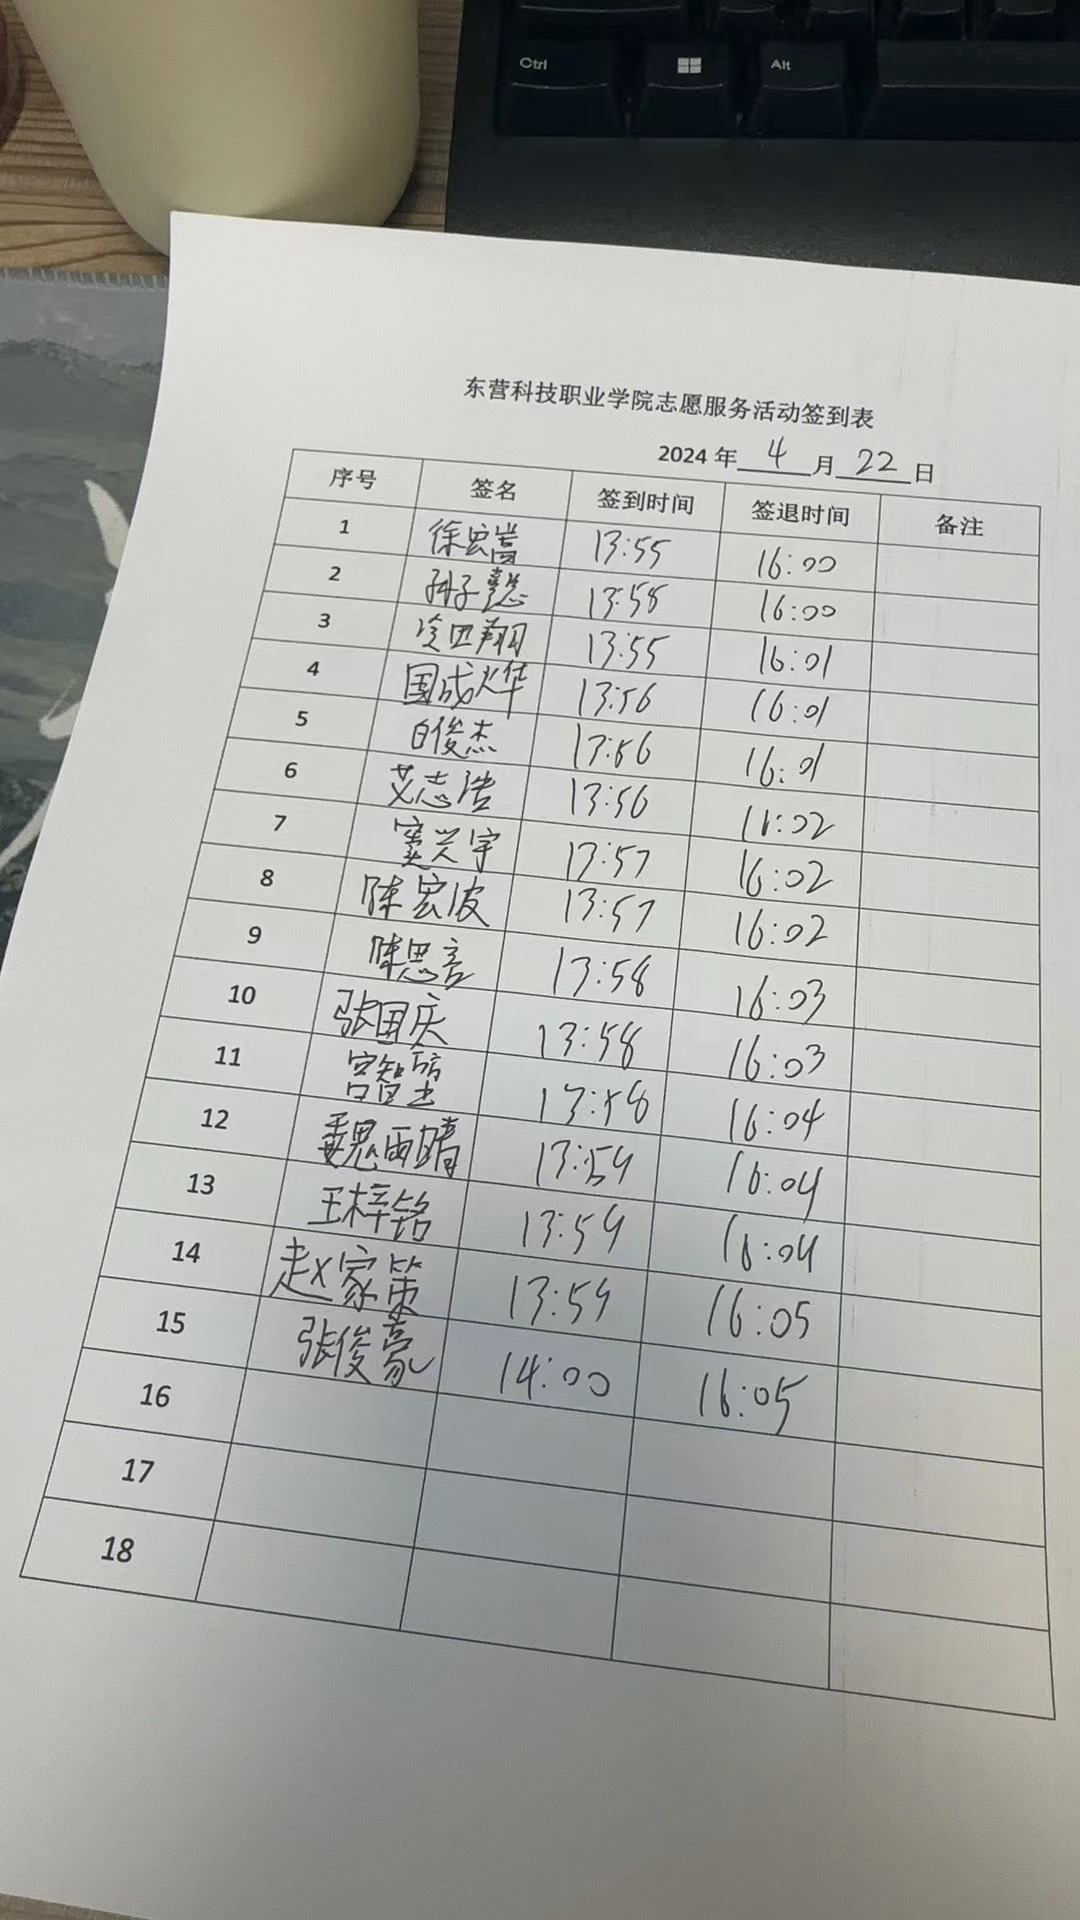 Ctrl
Alt
东营科技职业学院志愿服务活动签到表
2024 年 4 月 22 日
序号 签名 签到时间 签退时间 备注
1 徐宏嵩 13:55 16:00
2 孙子懿 13:58 16:00
3 13:55 16:01
4 国成烨 13:56 16:01
5 白俊杰 13:56 16:01
6 艾志浩 13:56 16:02
7 窦兴宇 13:57 16:02
8 陈宏波 13:57 16:02
9 陈思言 13:58 16:03
10 张国庆 13:58 16:03
11 13:58 16:04
12 魏雨晴 13:59 16:04
13 王梓铭 13:59 16:04
14 赵家策 13:59 16:05
15 张俊豪 14:00 16:05
16
17
18